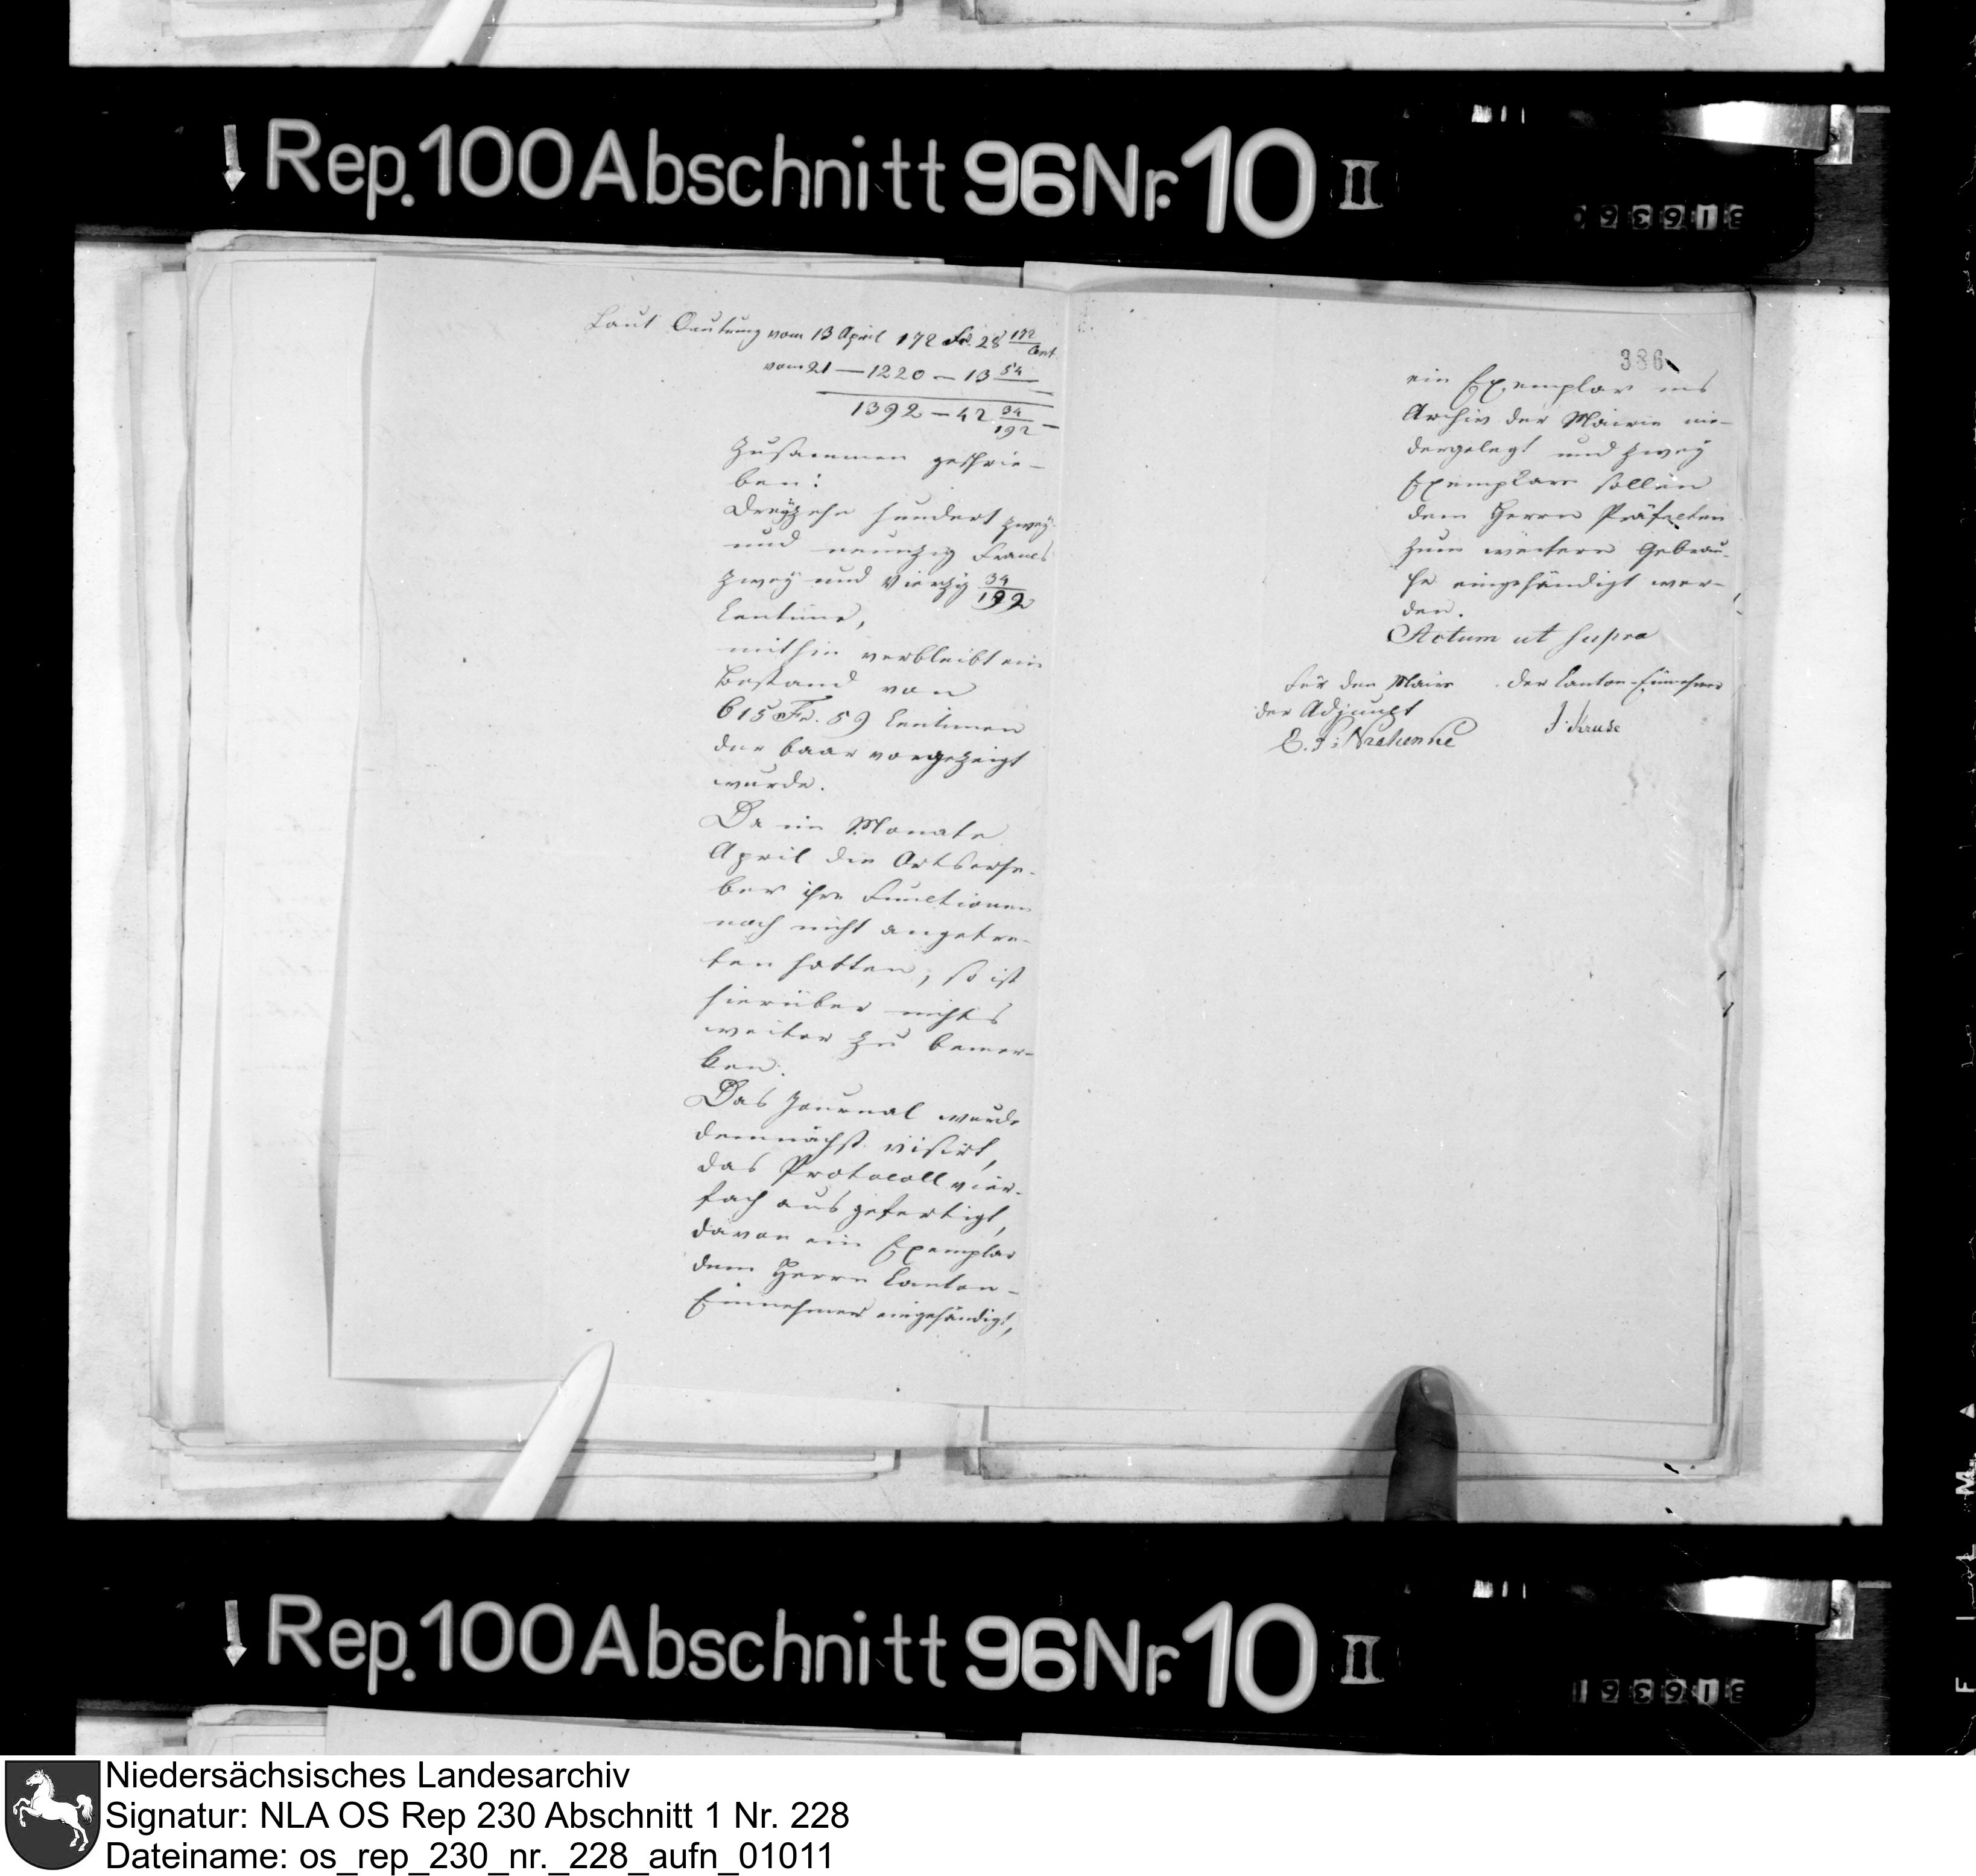 Rep. 100 Abschnitt 96 Nr. 10 II
Laut Quitung vom 13 April 172 Fr. 28 172/ Cent.
vom 21 — 1220 — 13 54/
1392 — 42 34/192 —
Zusammen geschrie-
ben:
Dreyzehn hundert zwey
und neunzig Francs
zwey und Vierzig 34/192
Centime,
mithin verbleibt ein
Bestand von
615 Fr. 59 Centimen
der baar vorgezeigt
wurde.
Da im Monate
April die Ortserhe-
ber ihre Functionen
noch nicht angetre-
ten hatten, so ist
hierüber nichts
weiter zu bemer-
ken.
Das Journal wurde
demnächst visirt,
das Protocoll vier-
fach ausgefertigt,
davon ein Exemplar
dem Herrn Canton-
Einnehmer eingehändigt,
386
ein Exemplar ins
Archiv der Mairie nie-
dergelegt und zwey
Exemplare sollen
dem Herrn Präfecten
zum weitern Gebrau-
che eingehändigt wer-
den.
Actum ut supra
Für den Maire der Canton-Einnehmer
der Adjunct J. Kruse
Rep. 100 Abschnitt 96 Nr. 10 II
Niedersächsisches Landesarchiv
Signatur: NLA OS Rep 230 Abschnitt 1 Nr. 228
Dateiname: os_rep_230_nr._228_aufn_01011